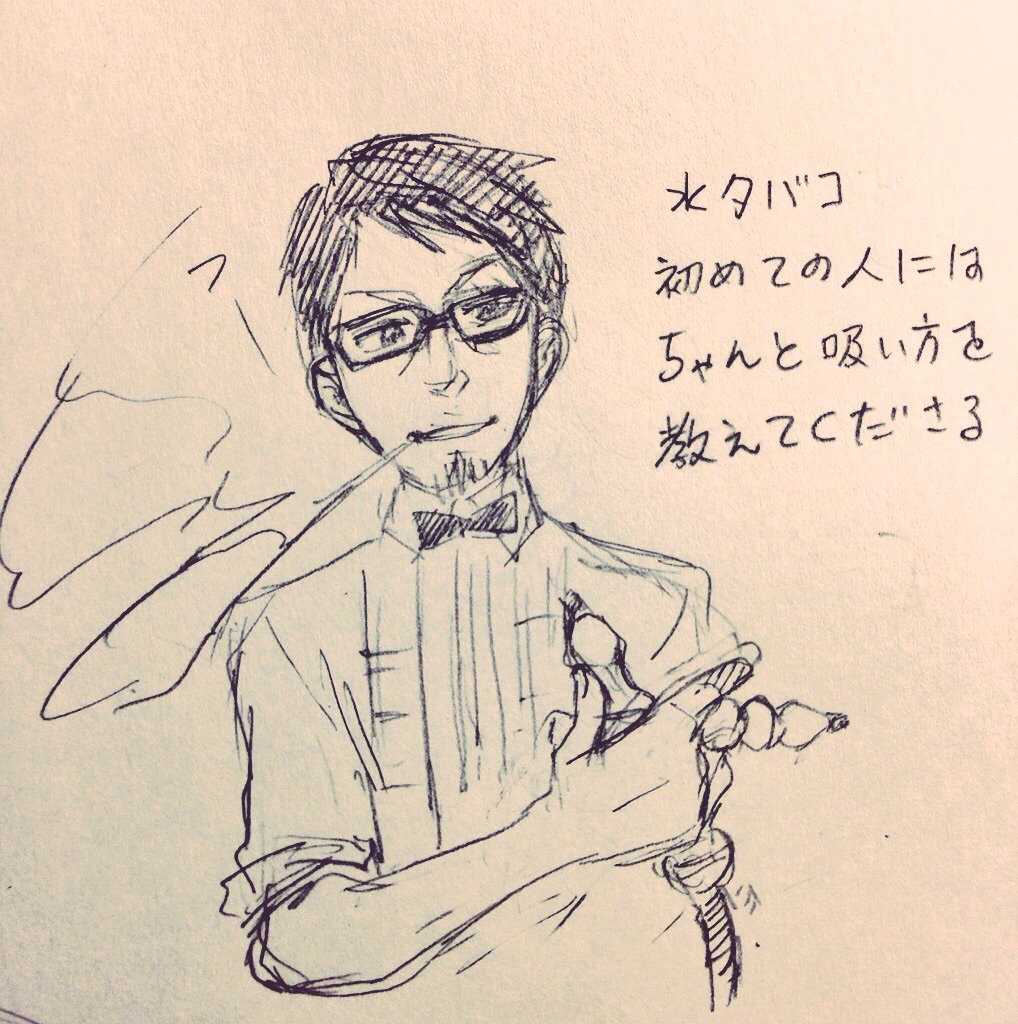 水タバコ
初めての人には
ちゃんと吸い方を
教えてくださる